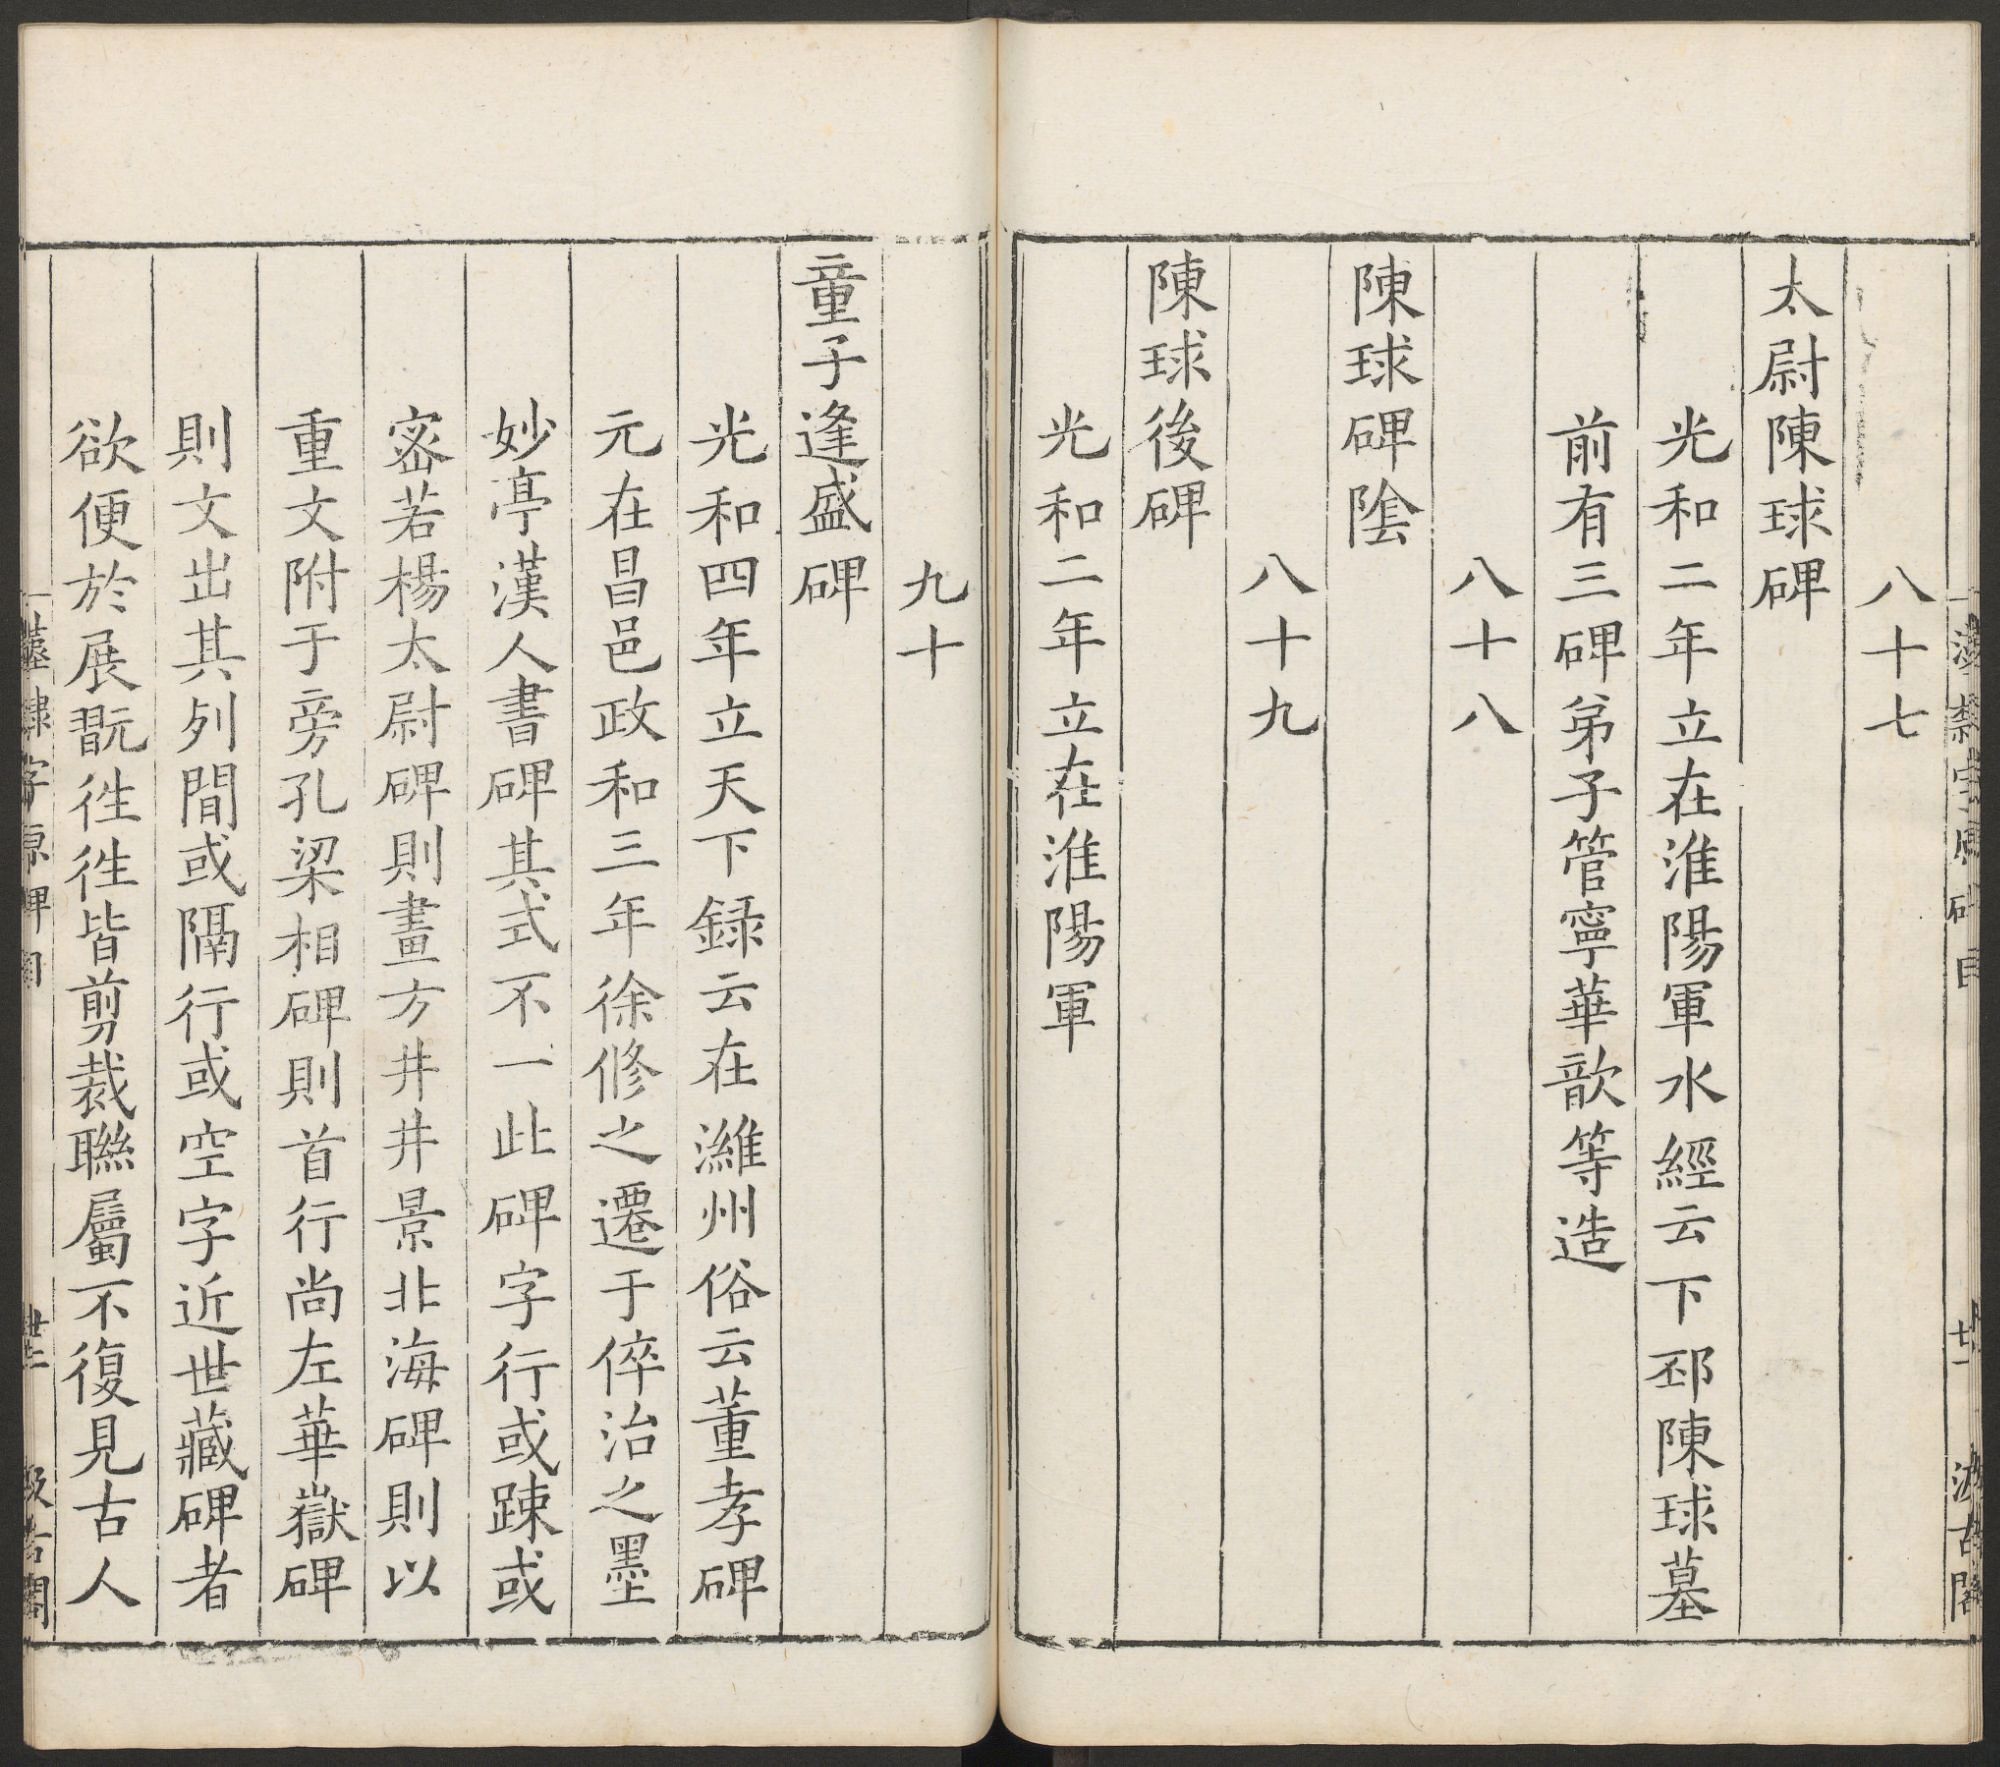 八十七
太尉陳球碑
光和二年立在淮陽軍水經云下邳陳球墓
前有三碑弟子管寧華歆等造
八十八
陳球碑陰
八十九
陳球後碑
光和二年立在淮陽軍
九十
童子逢盛碑
光和四年立天下録云在濰州俗云董孝碑
元在昌邑政和三年徐修之遷于倅治之墨
妙亭漢人書碑其式不一此碑字行或踈或
宻若楊太尉碑則畫方井井景北海碑則以
重文附于旁孔梁相碑則首行尚左華嶽碑
則文出其列間或隔行或空字近世藏碑者
欲便於展翫徃徃皆剪裁聯屬不復見古人